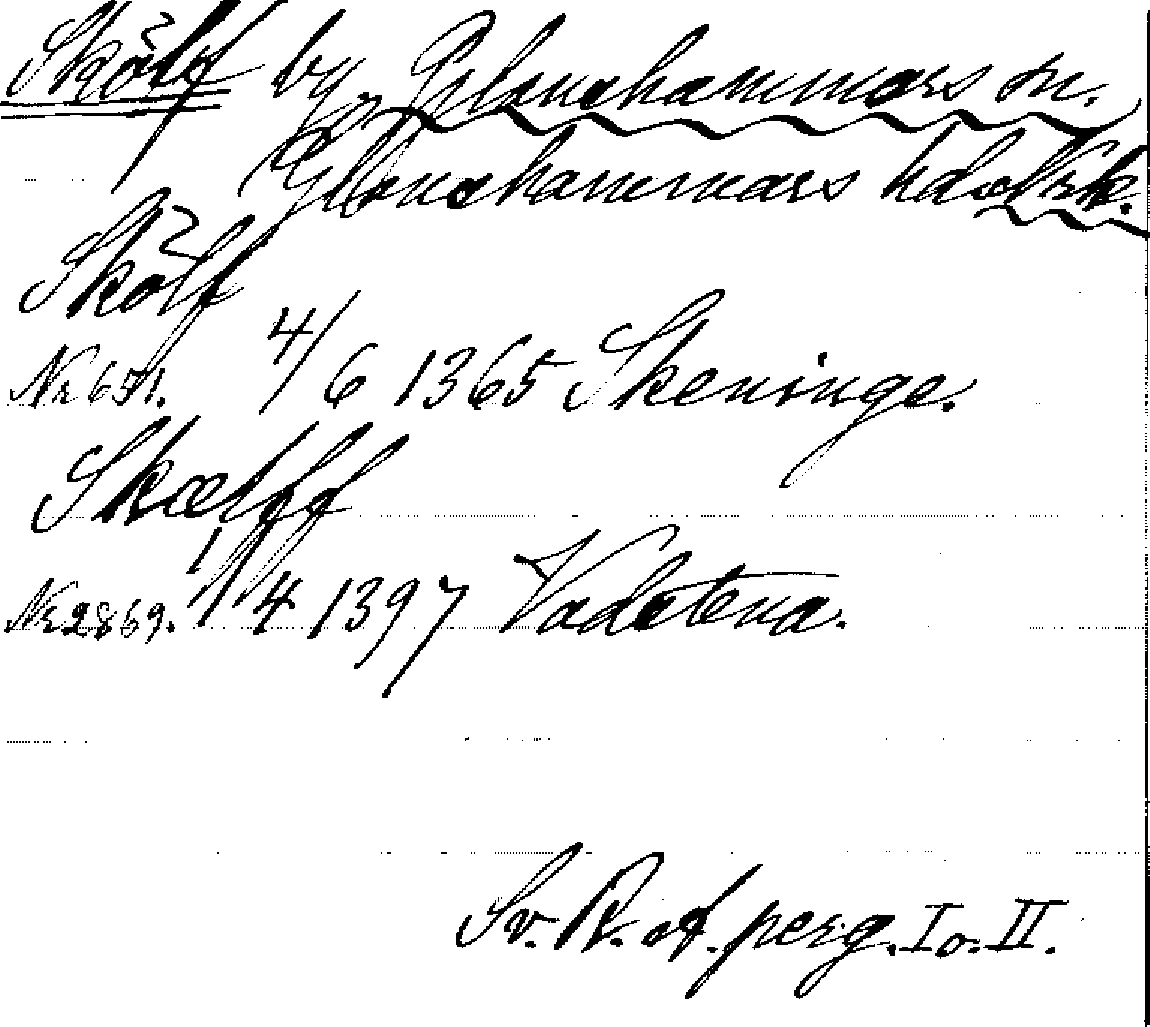 Skälf by, Glanshammars sn.
Glanshammars hd. Nrk.
Skölf
Nr 651. 4/6 1365 Skeninge.
Skælff
Nr 2869. 1/4 1397 Vadstena.
Sv. R. af. perg. I o. II.